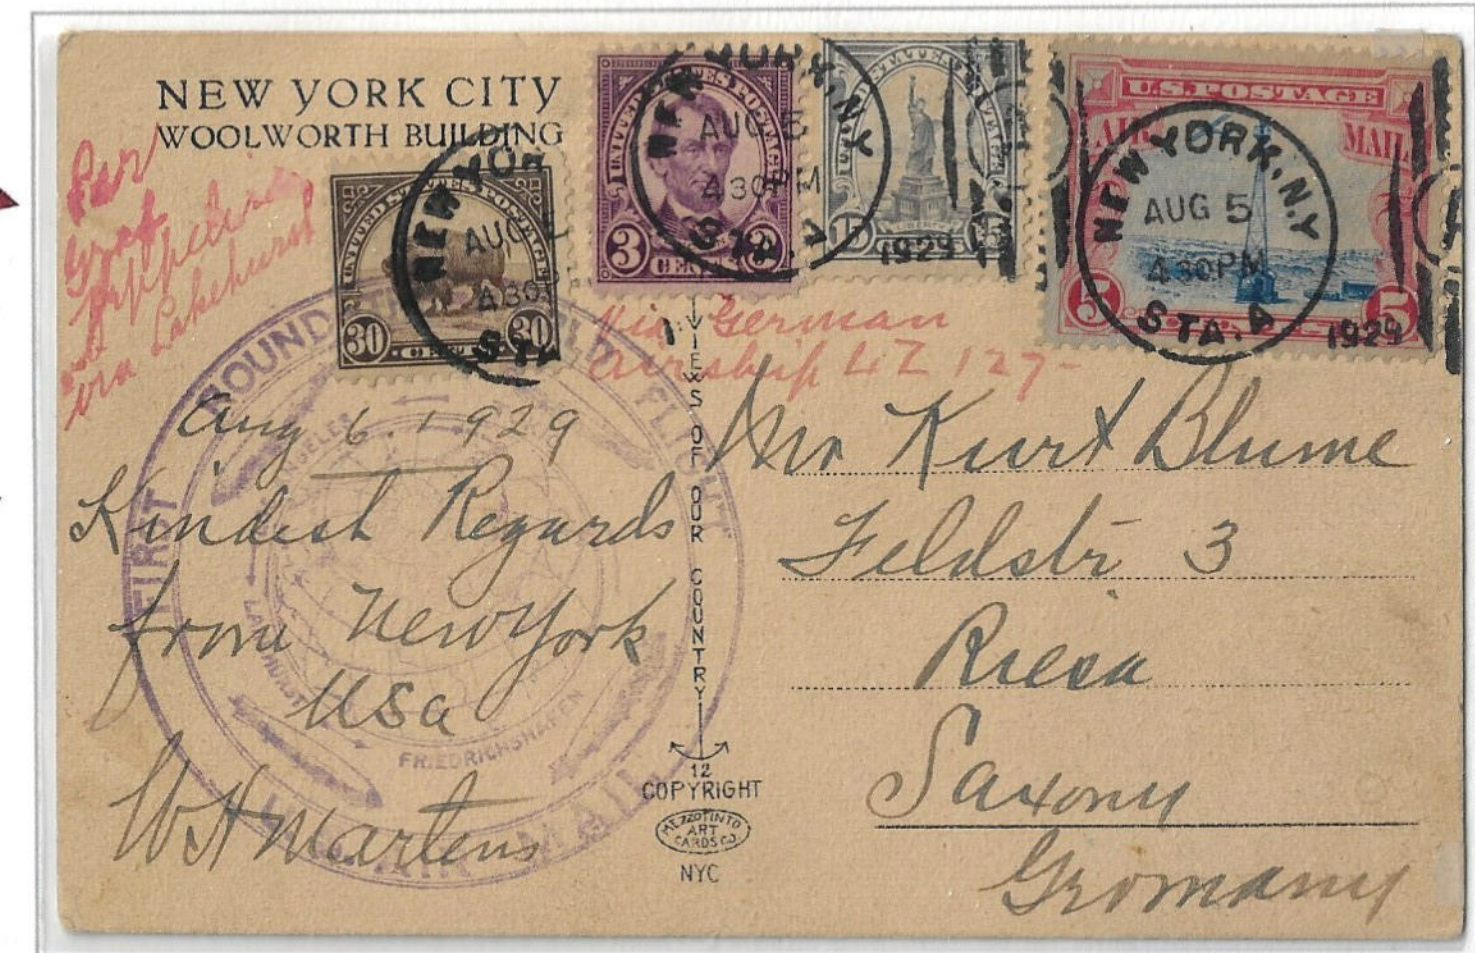 NEW YORK CITY
WOOLWORTH BUILDING
Per
Graf
Zeppelin
via Lakehurst
UNITED STATES POSTAGE
30 CENTS 30
NEW YO
AUG
430
STA
UNITED STATES POSTAGE
3 CENTS 3
NEW YORK, N.Y.
AUG 5
430PM
STA. A
1929
15
U.S. POSTAGE
AIR MAIL
5 CENTS 5
NEW YORK, N.Y.
AUG 5
430PM
STA. A
1929
Via German
airship LZ 127-
FIRST ROUND THE WORLD FLIGHT
U.S. AIR MAIL
LOS ANGELES
LAKEHURST
FRIEDRICHSHAFEN
Aug 6. 1929
Kindest Regards
from New York
USa
WH Martens
VIEWS OF OUR COUNTRY
12
COPYRIGHT
MEZZOTINTO
ART
CARDS CO
NYC
Mr Kurt Blume
Feldstr 3
Riesa
Saxony
Gromany